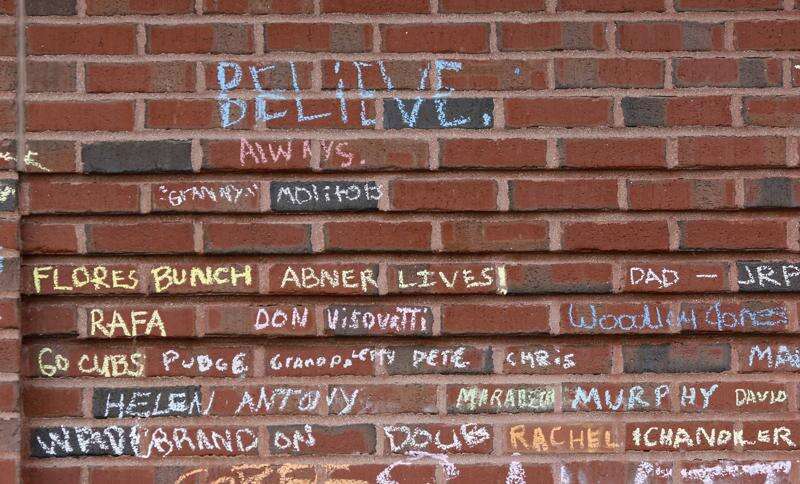 BELiEVE.
AlWAYS.
"GRANNY" MOlitoR
FLORES BUNCH ABNER LIVES! DAD — JRP
RAFA DON Visovatti Woodley Jones
GO CUBS PUDGE Grandpa PETE CHRis
HELEN ANTONY MURPHY DAVID
BRANDON DOUG RACHEL &CHANDLER